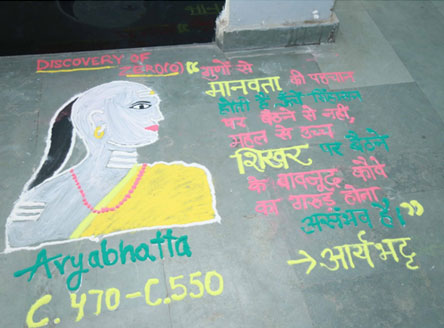 DISCOVERY OF
ZERO(0)
“गुणों से
मानवता की पहचान
होती है, ऊँचे सिंहासन
पर बैठने से नहीं,
महल से उच्च
शिखर पर बैठने
के बावजूद कौवे
का गरुड़ होना
असंभव है।”
→ आर्यभट्ट
Aryabhatta
C. 470-C.550